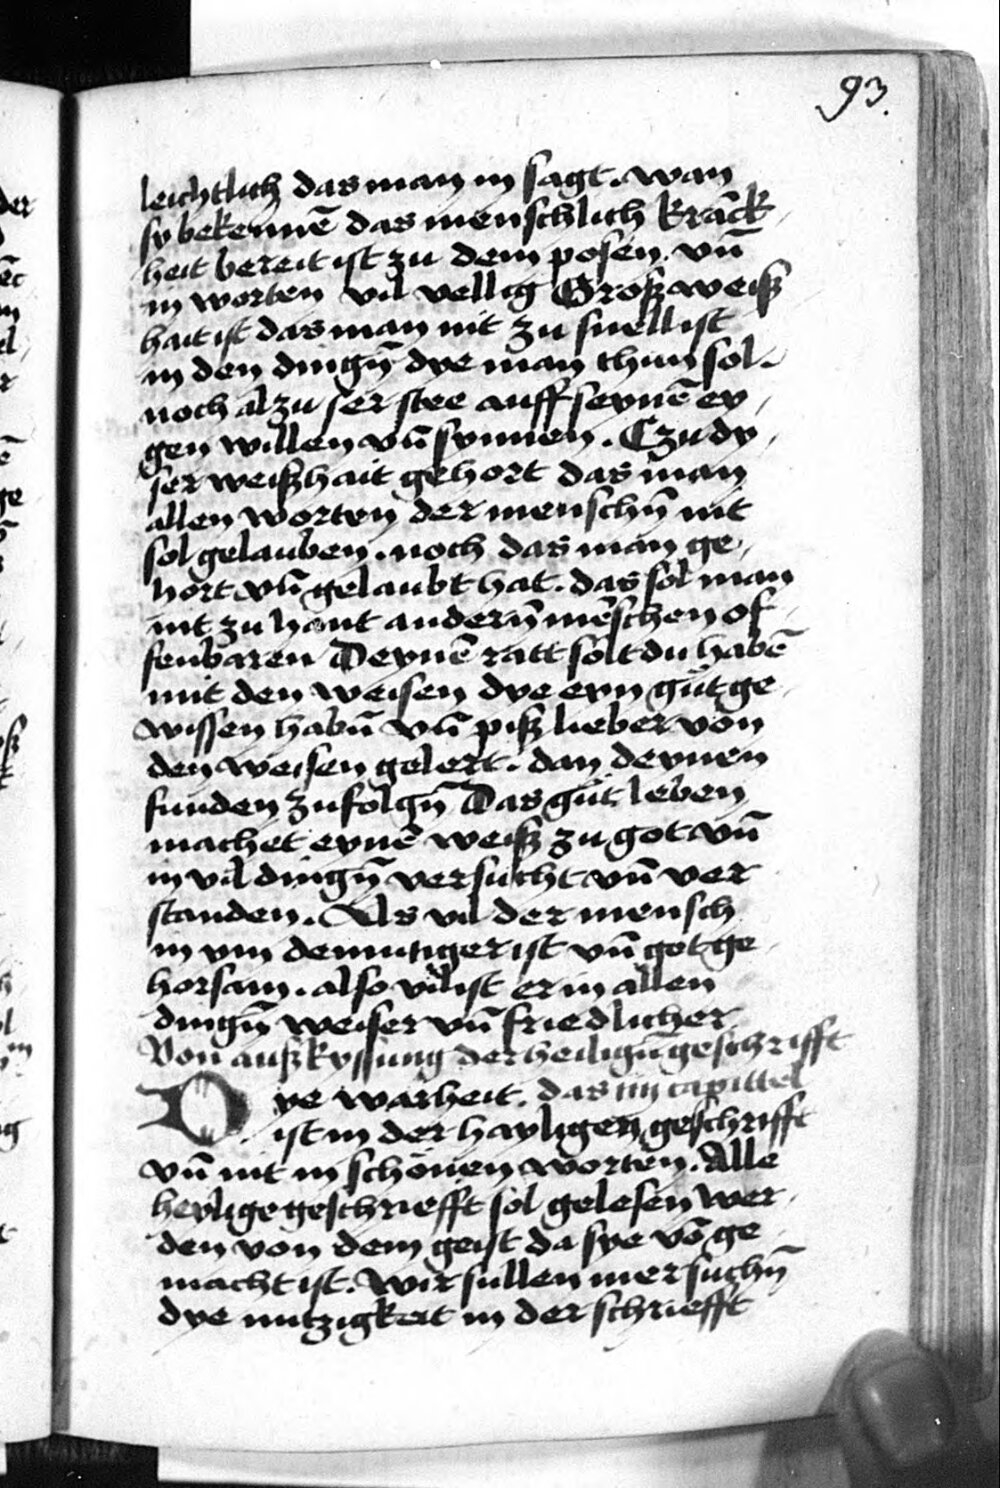 93.
leichtlich das man in sagt. wan
sy bekennē das menschlich kränck
heit bereit ist zu dem posen. vn̄
in worten vil vellig Groß weiß
hait ist das man nit zu snell ist
in den dingn̄ dye man thun sol.
noch al zu ser stee auff seynē ey
gen willen vn̄ synnen. Czu dy
ser weißhait gehort das man
allen worten der menschn̄ nit
sol gelauben. noch das man ge
hort vn̄ gelaubt hat. das sol man
nit zu hant andern̄ mēschen of
fenbaren Deynē ratt solt du habē
mit den weisen dye eyn gut ge
wissen habn̄ vn̄ piß lieber von
den weisen gelert. dan deynen
funden zu folgn̄ Das gut leben
machet eynē weiß zu got vn̄
in vil dingn̄ versucht vn̄ ver
standen. Als vil der mensch
in ym demutiger ist vn̄ got ge
horsam. also vil ist er in allen
dingn̄ weiser vn̄ friedlicher
Von außkyssung der heilign̄ geschrifft
Dye warheit. das iiij capittel
ist in der hayligen geschrifft
vn̄ nit in schönen worten. Alle
heylige geschriefft sol gelesen wer
den von dem geist da sye vō ge
macht ist. Wir sullen mer suchn̄
dye nutzigkeit in der schriefft